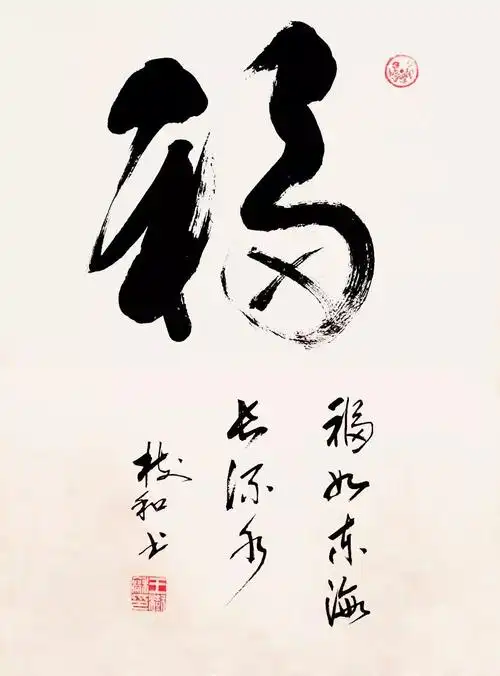 福
福如东海
长流水
树和书